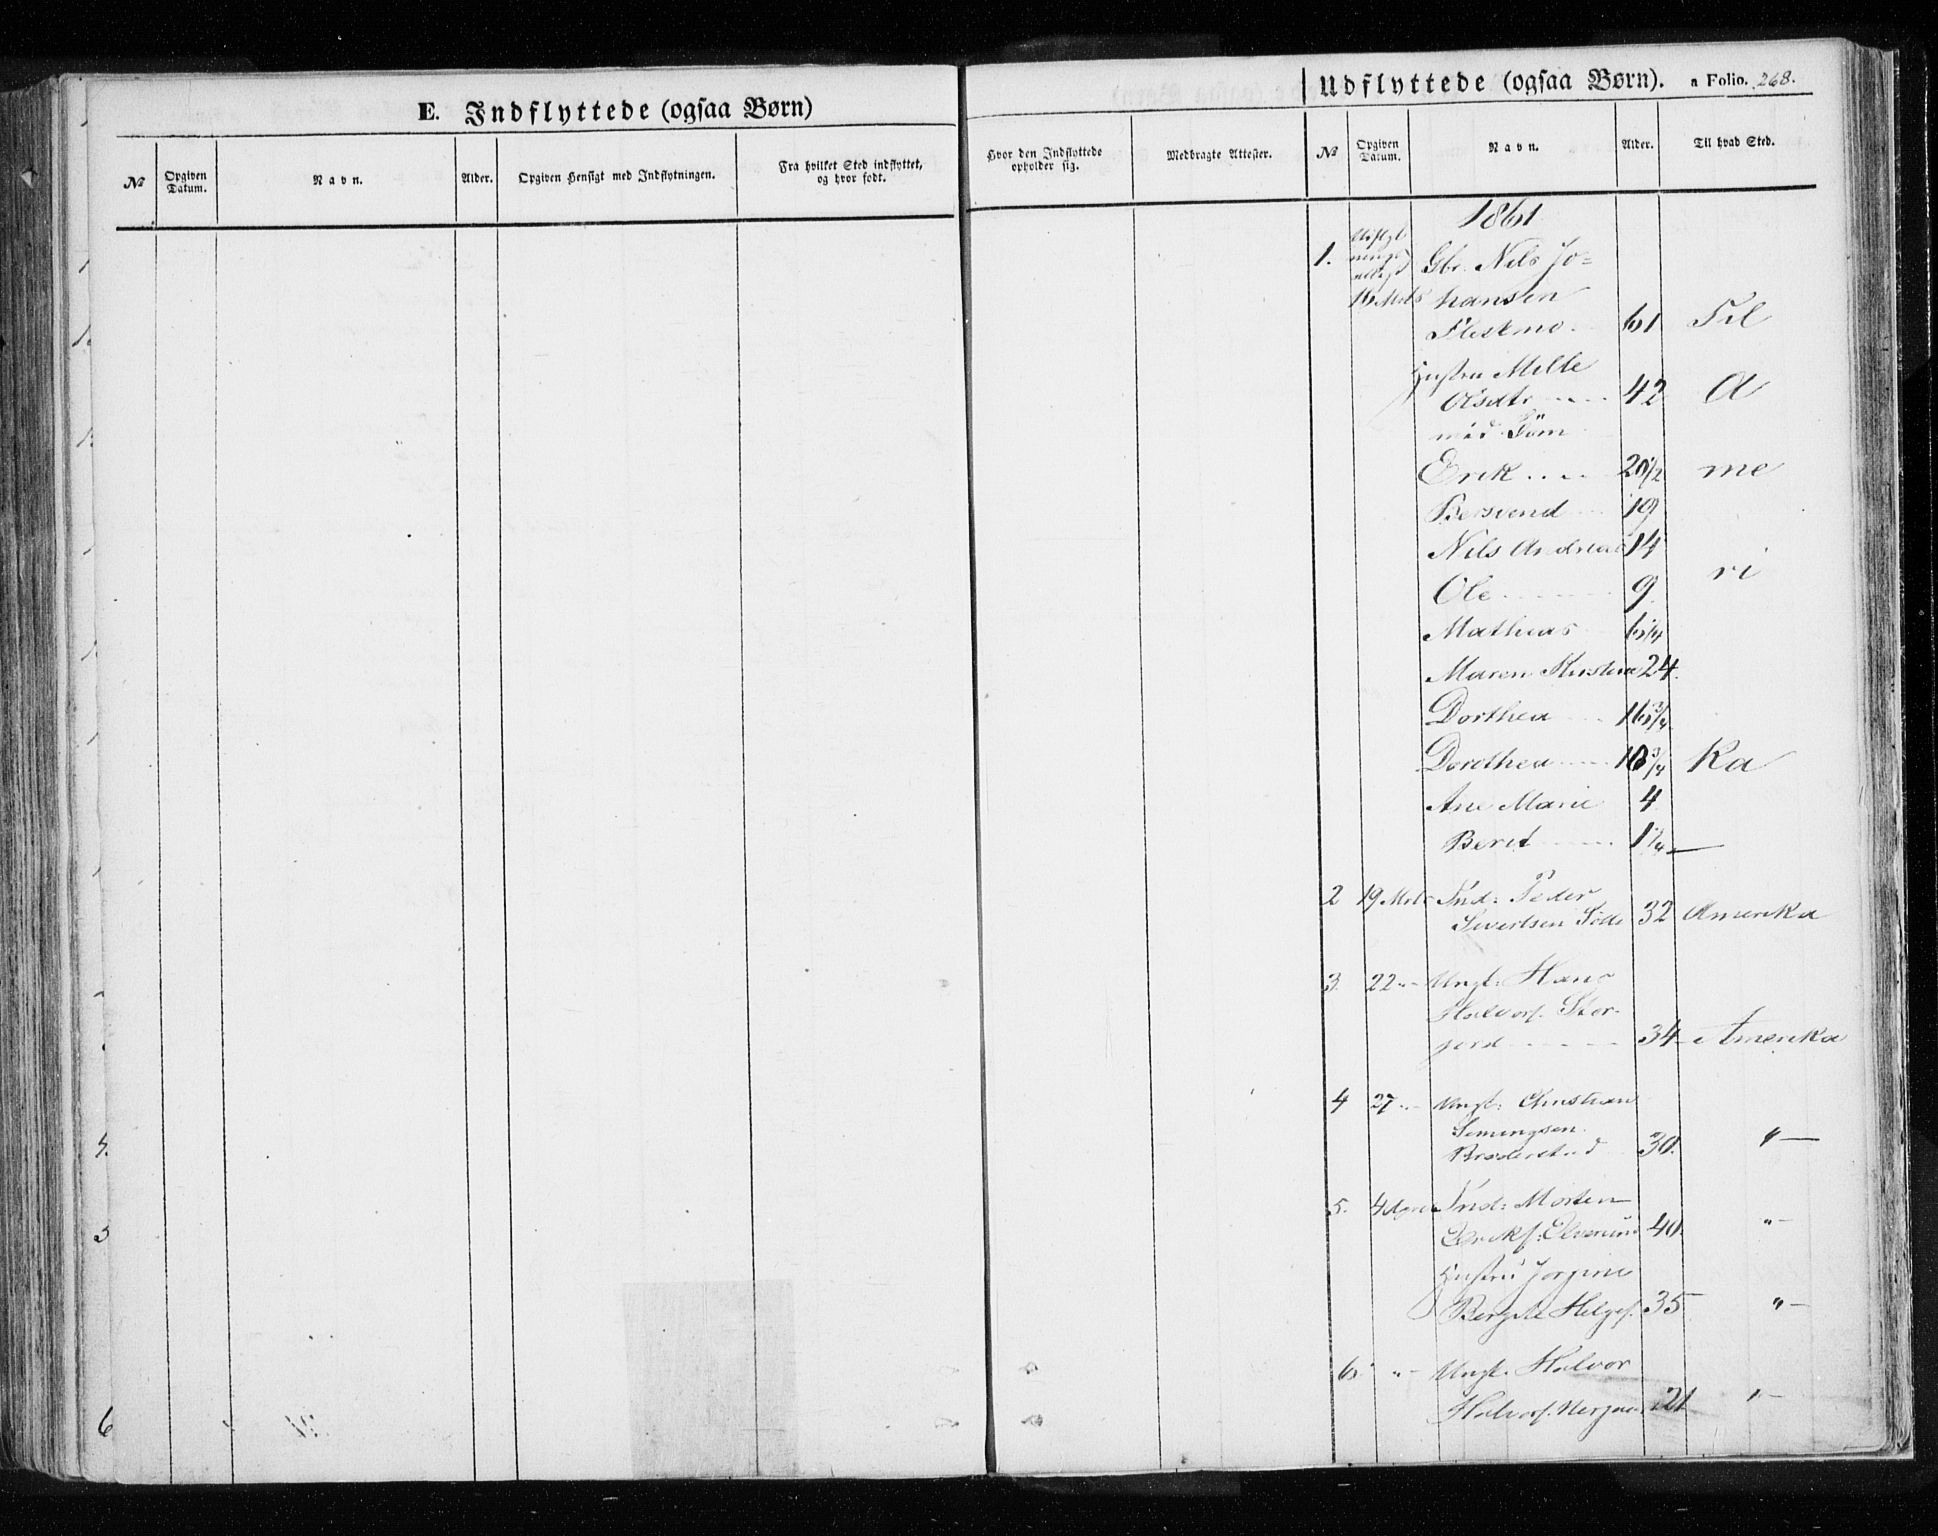 E. Indflyttede (ogsaa Børn)
№ Opgiven Datum. Navn. Alder. Opgiven Hensigt med Indflytningen. Fra hvilket Sted indflyttet, og hvor født.
Hvor den Indflyttede opholder sig. Medbragte Attester.
Udflyttede (ogsaa Børn). a Folio. 268.
№ Opgiven Datum. Navn. Alder. Til hvad Sted.
1861
1. Gbr. Nils Jo=
16 Mrts hansen
Flestmo 61 Til
Hustru Mille
Olsdtr 42 A
med Børn
Erik 20 1/2 me
Bersvend 19
Nils Andreas 14
ri
Ole 9
Mathias 6 1/4
Maren Kirstine 24
Dorthea 16 3/4
Dorothea 10 3/4 ka
Ane Marie 4
Berit 1 1/4 —
2 19 Mrts Ind: Peder
Sivertsen 32 Amerika
3. 22 "- Ungk: Hans
Halvors. Stor-
jord 34 Amerika
4 27 "- Ungk: Christian
Simingsen
Bräderstad 30. "—
5. 4 April Ind: Morten
Eriks: Elverum 40. "-
Hustru Jørgine
Bergite Helges. 35 "-
6 "- Ungk. Halvor
Halvors. 21 "-
4.
3
6